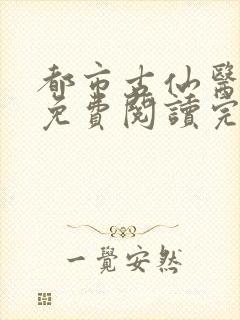 都市古仙醫
免費閱讀完
一覺安然